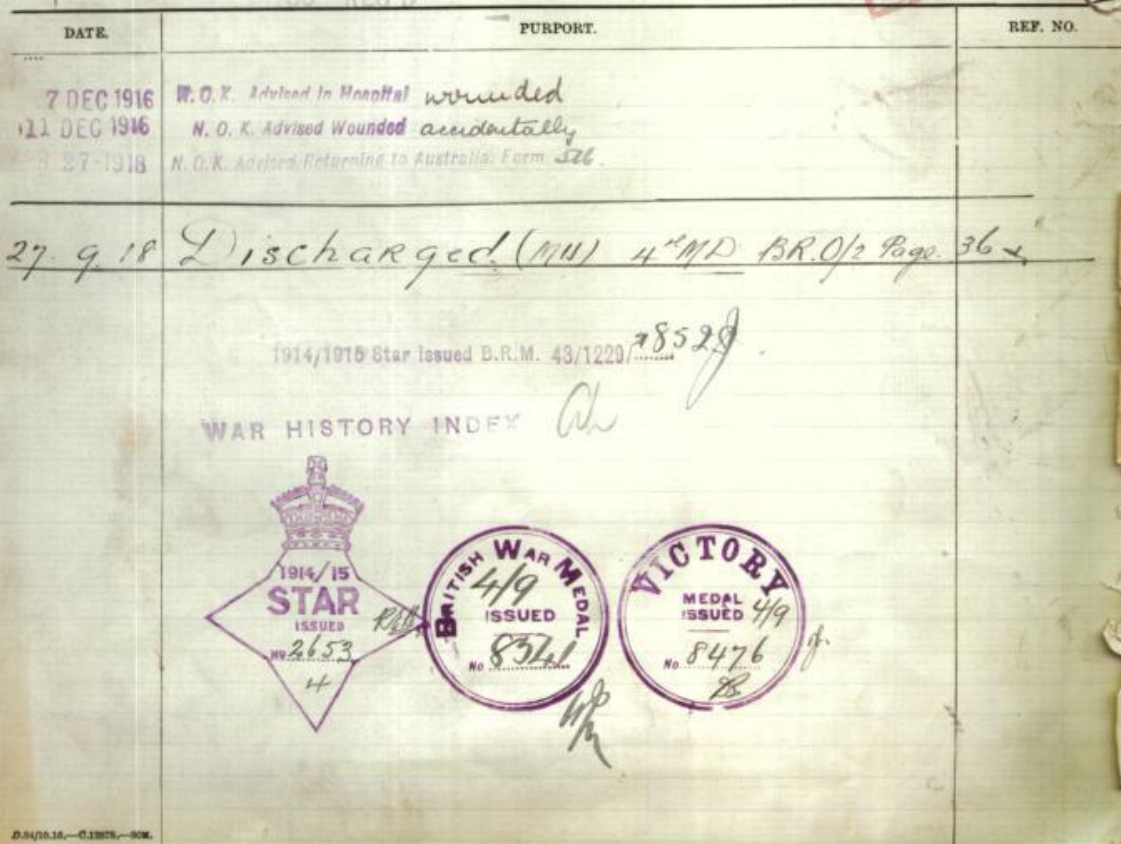 DATE. PURPORT. REF. NO.
7 DEC 1916 N.O.K. Advised in Hospital wounded
11 DEC 1916 N.O.K. Advised Wounded accidentally
27-1918 N.O.K. Advised Returning to Australia. Form
27. 9. 18 Discharged (MU) 4th MD BR.O/2 Page. 36
1914/1915 Star issued B.R.M. 43/1229/ 8528
WAR HISTORY INDEX
1914/15
STAR
ISSUED
No 2653
4
BRITISH WAR MEDAL
4/9
ISSUED
No
VICTORY
MEDAL
ISSUED 4/9
No 8476